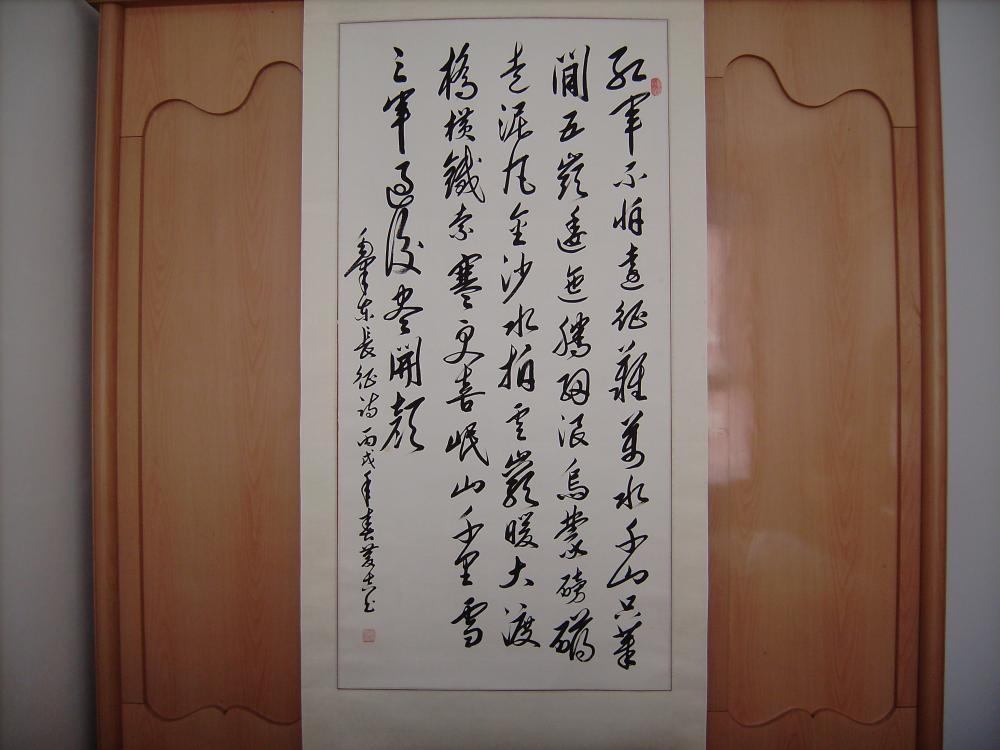 紅軍不怕遠征難萬水千山只等
閒五嶺逶迤騰細浪烏蒙磅礴
走泥丸金沙水拍雲巖暖大渡
橋横鐵索寒更喜岷山千里雪
三軍過後盡開顔
毛澤東長征詩丙戌年春